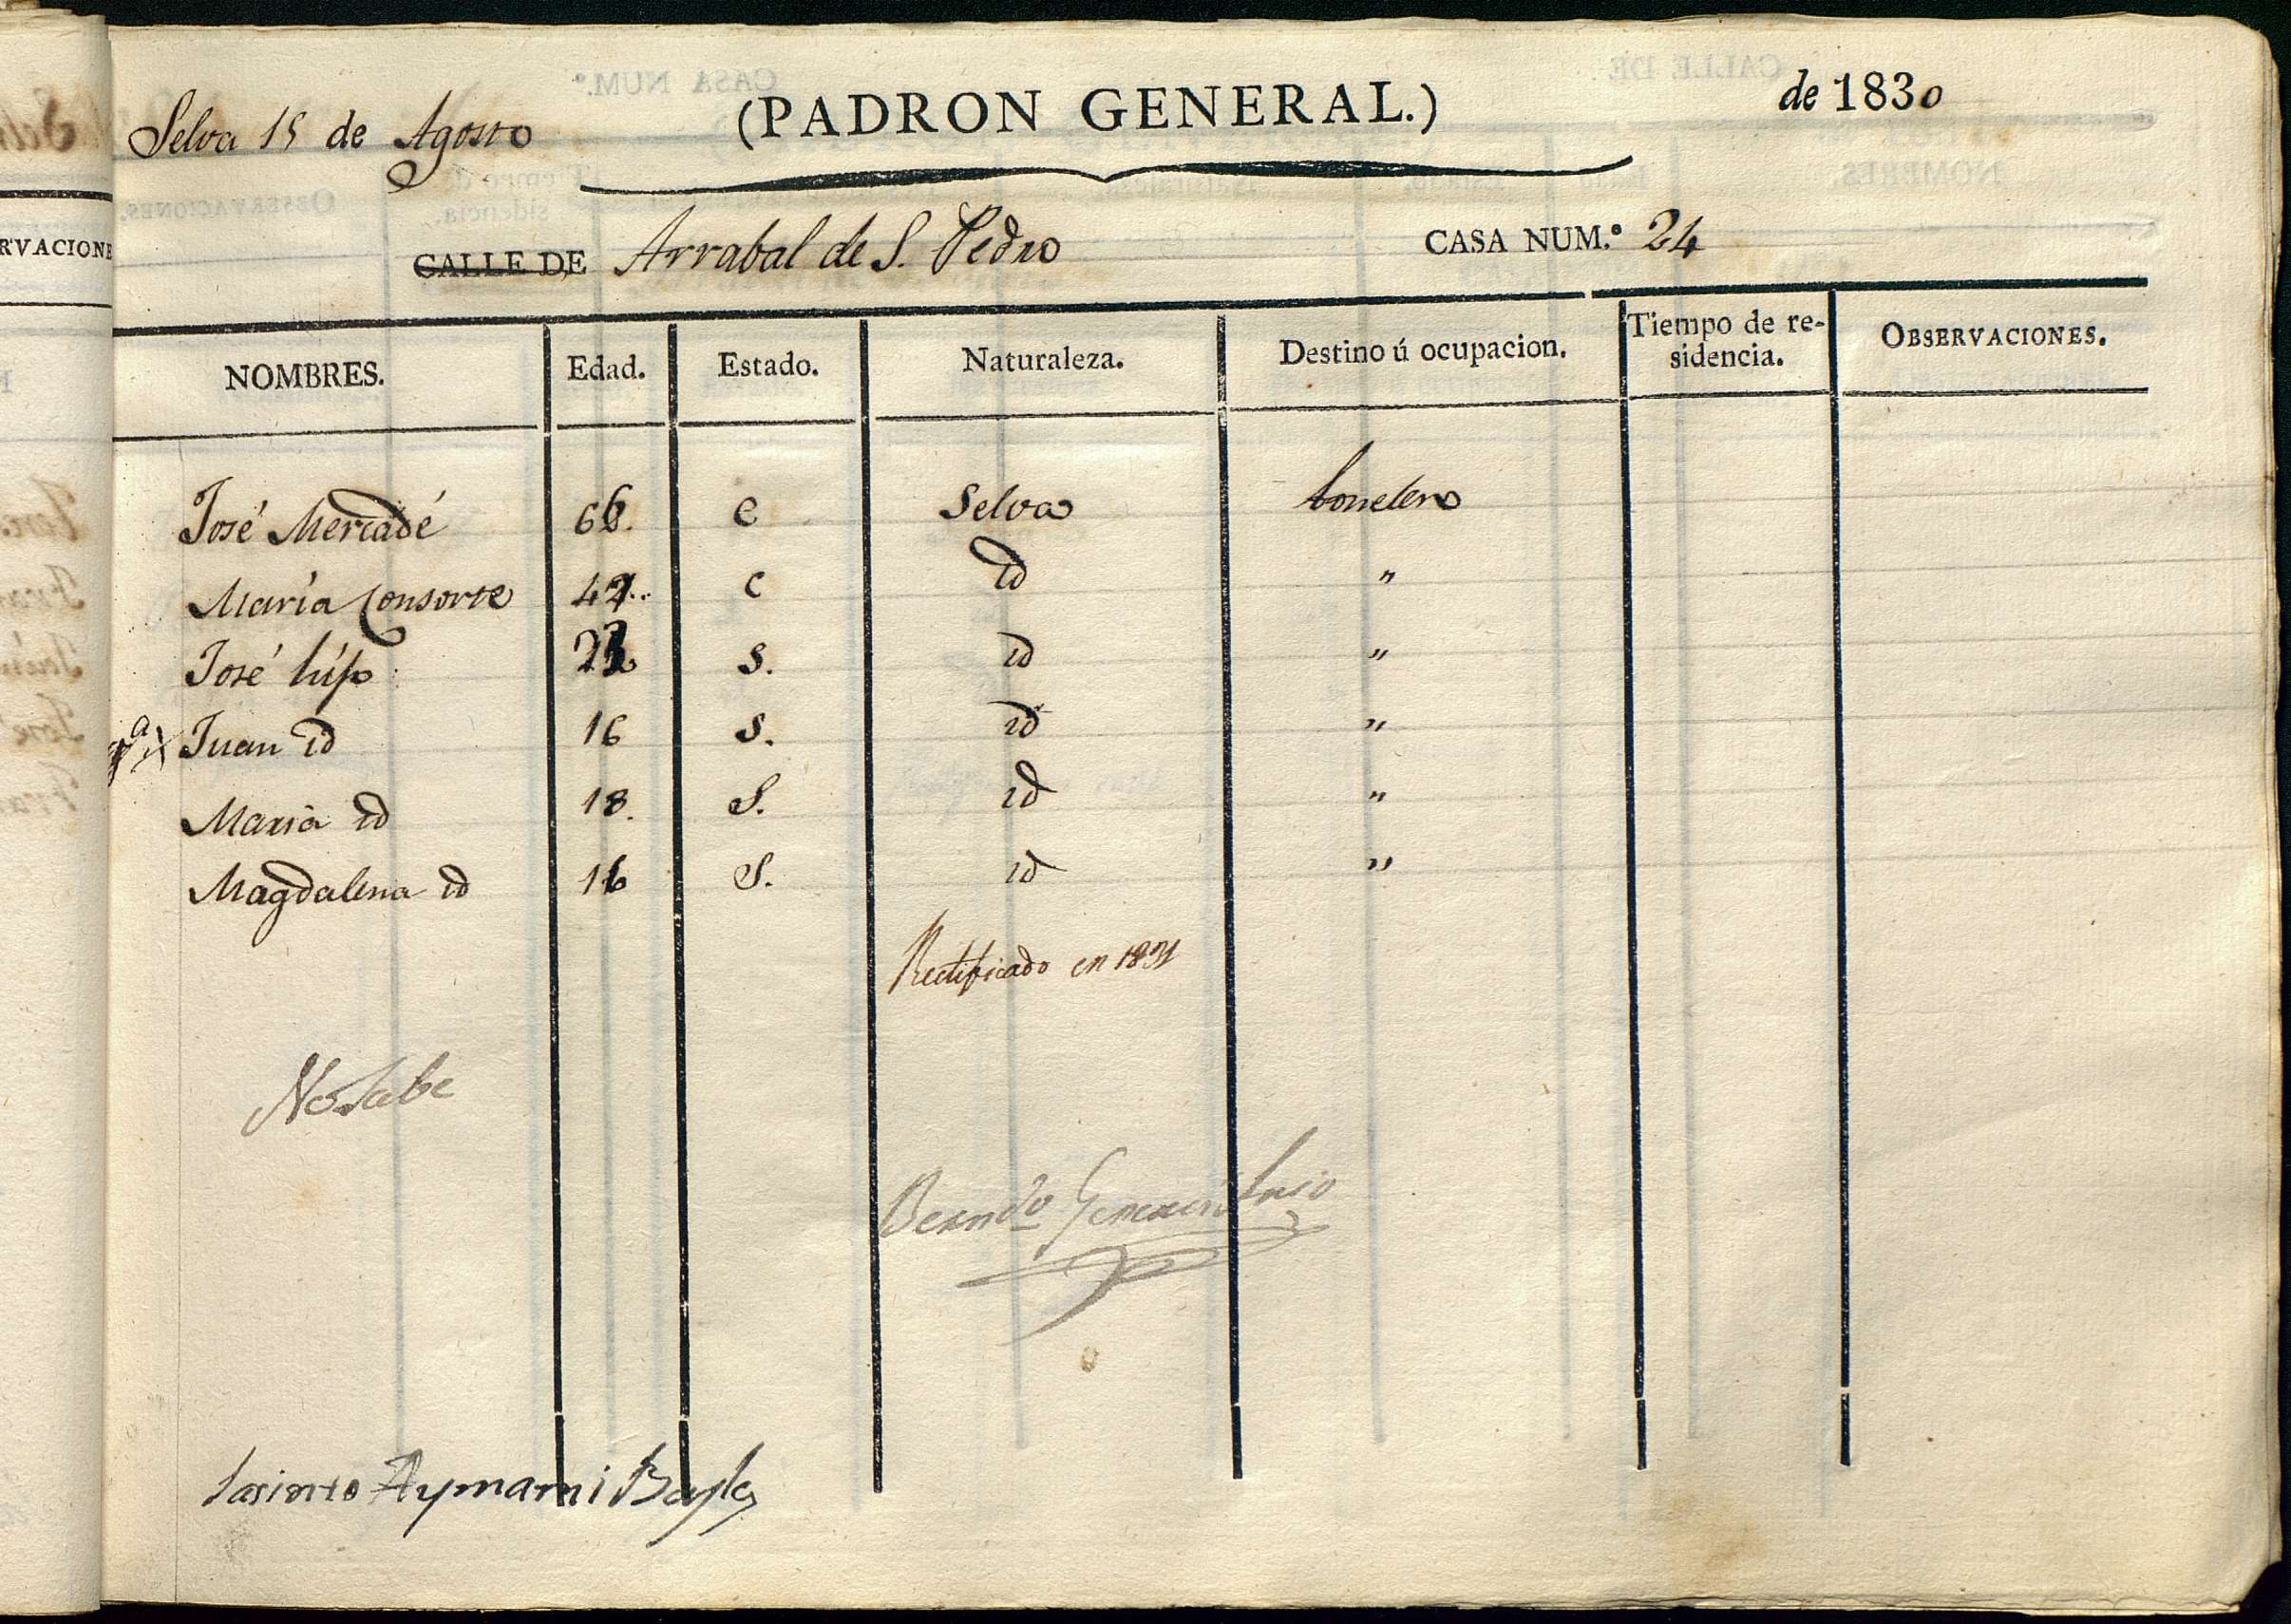 Selva 15 de Agosto (PADRON GENERAL.) de 1830
CALLE DE Arrabal de S. Pedro CASA NUM.º 24
NOMBRES. Edad. Estado. Naturaleza. Destino ú ocupacion. Tiempo de re-
sidencia. OBSERVACIONES.
José Mercadé 66. c Selva tonelero
María Consorte c id "
José hijo s. id "
Juan id 16 s. id "
Maria id 18. S. id "
Magdalena id 16 S. id "
Rectificado en 1831
No Sabe
Jasinto Aymami Bayle